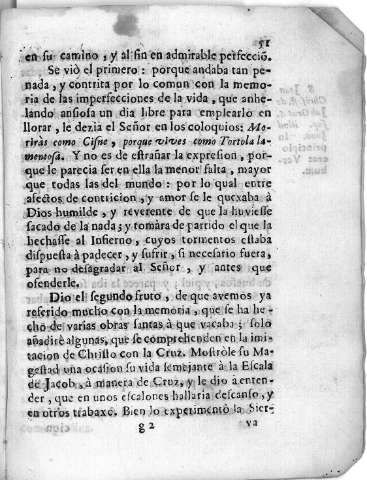 51
en su camino, y al fin en admirable perfecciō.
Se viò el primero: porque andaba tan pe-
nada, y contrita por lo comun con la memo-
ria de las imperfecciones de la vida, que anhe-
lando ansiosa un dia libre para emplearlo en
llorar, le dezia el Señor en los coloquios: Mo-
riràs como Cisne, porque vives como Tortola la-
mentosa. Y no es de estrañar la expresion, por-
que le parecia ser en ella la menor falta, mayor
que todas las del mundo: por lo qual entre
afectos de contricion, y amor se le quexaba à
Dios humilde, y reverente de que la huviesse
sacado de la nada; y tomàra de partido el que la
hechasse al Infierno, cuyos tormentos estaba
dispuesta à padecer, y sufrir, si necesario fuera,
para no desagradar al Señor, y antes que
ofenderle.
Dio el segundo fruto, de que avemos ya
referido mucho con la memoria, que se ha he-
cho de varias obras santas à que vacaba; solo
añadirè algunas, que se comprehenden en la imi-
tacion de Christo con la Cruz. Mostròle su Ma-
gestad una ocasion su vida semejante à la Escala
de Jacob, à manera de Cruz, y le dio à enten-
der, que en unos escalones hallaria descanso, y
en otros trabaxo. Bien lo experimentò la Sier-
g 2 va